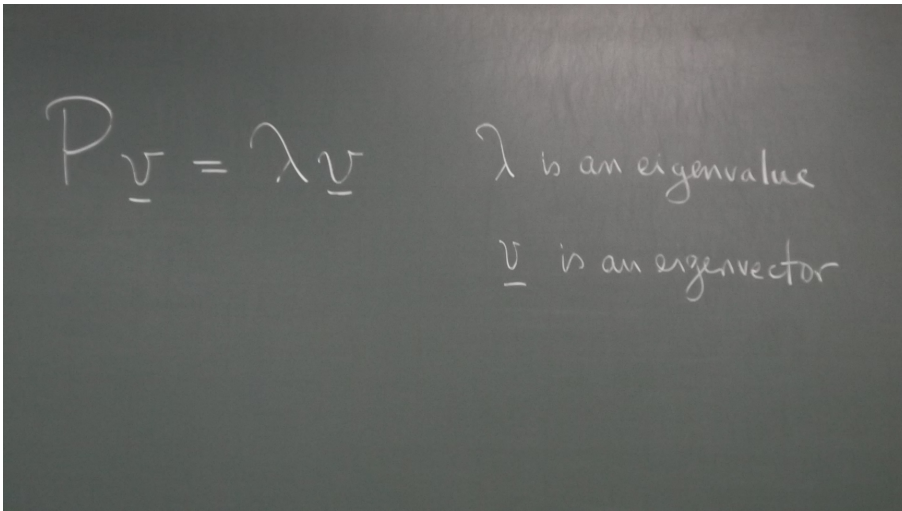 P v = λ v
λ is an eigenvalue
v is an eigenvector